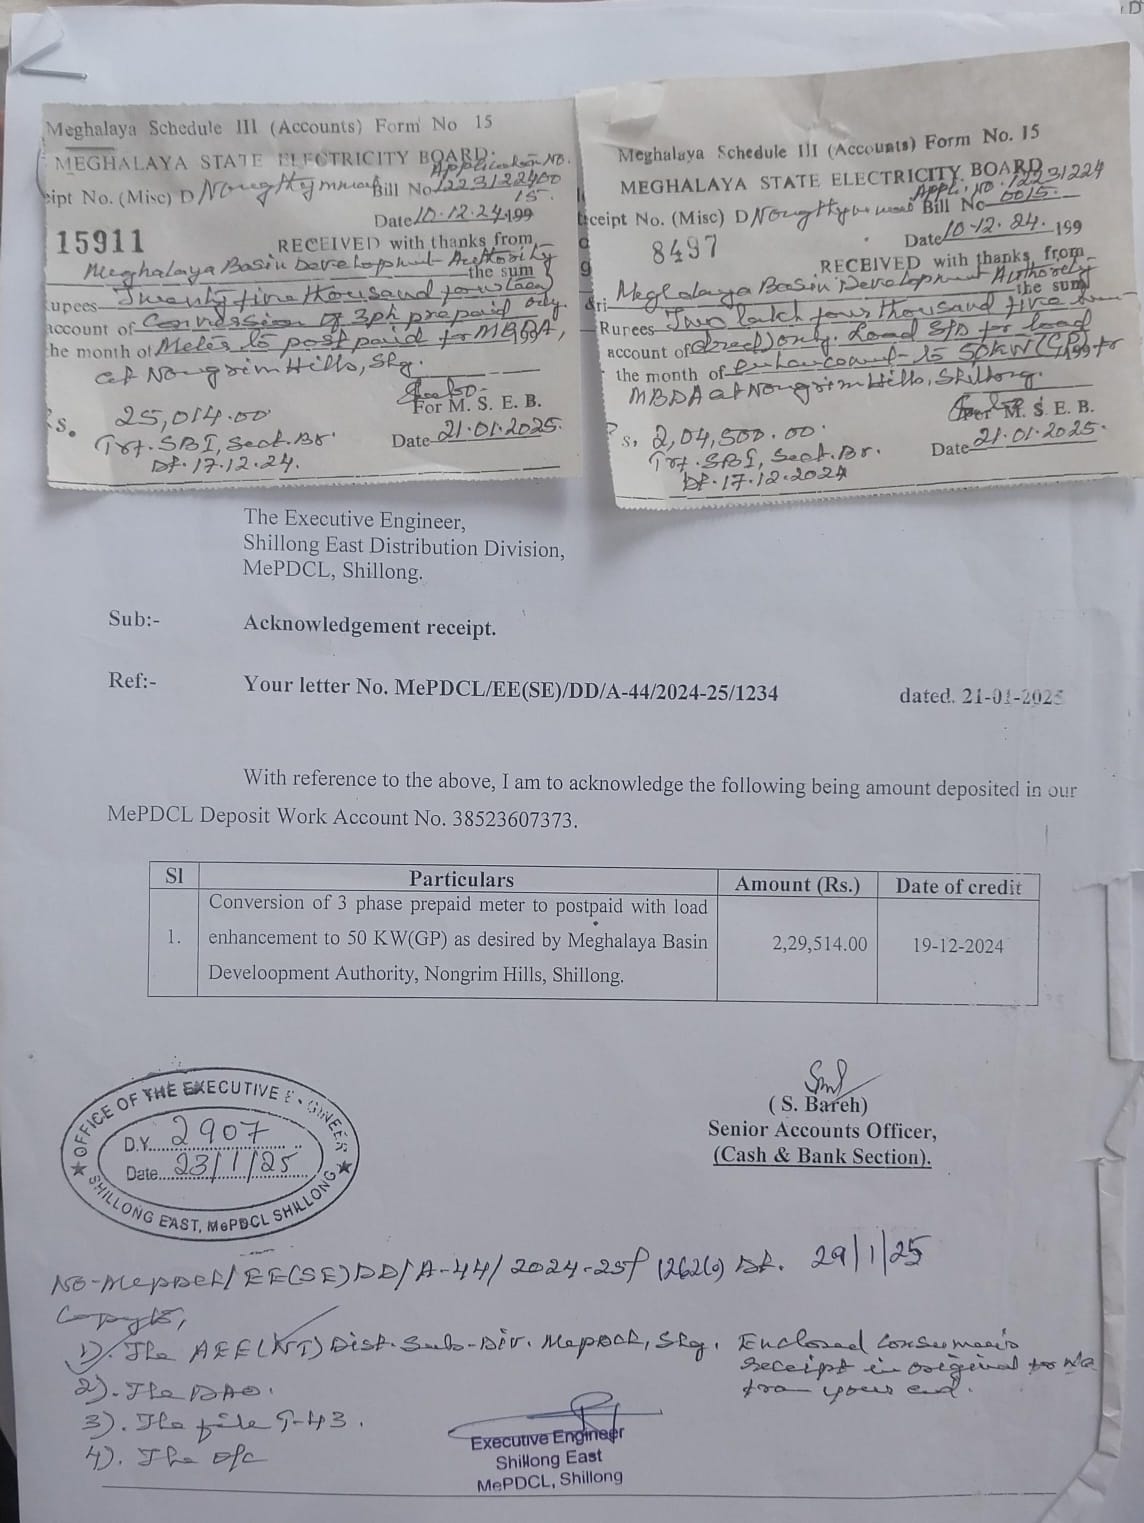 Meghalaya Schedule III (Accounts) Form No 15
MEGHALAYA STATE ELECTRICITY BOARD.
Application No.
eipt No. (Misc) D Bill No 1223122400
15.
Date 10.12.24 199
15911 RECEIVED with thanks from
Meghalaya Basin Development Authority
the sum
upees Twenty five thousand fourteen only.
account of Conversion of 3ph prepaid
he month of Meter to post paid for MBDA, 199
at Nongrim Hills, Shg.
For M. S. E. B.
Rs. 25,014.00
Date 21.01.2025.
Trf. SBI, Sect. Br.
Df. 17.12.24.
Meghalaya Schedule III (Accounts) Form No. 15
MEGHALAYA STATE ELECTRICITY BOARD
Appli. No. 12231224
eceipt No. (Misc) D Bill No 0015.
Date 10-12. 24. 199
8497
RECEIVED with thanks from
Meghalaya Basin Development Authority
the sum
Rurees Two lakh four thousand five
account of only. Load S/D for load
the month of enhancement to 50KW (GP) 199 for
MBDA at Nongrim Hills, Shillong.
For M. S. E. B.
Rs, 2,04,500.00.
Date 21.01.2025.
Trf. SBI, Sect. Br.
Df. 17.12.2024
The Executive Engineer,
Shillong East Distribution Division,
MePDCL, Shillong.
Sub:- Acknowledgement receipt.
Ref:- Your letter No. MePDCL/EE(SE)/DD/A-44/2024-25/1234 dated. 21-01-2025
With reference to the above, I am to acknowledge the following being amount deposited in our
MePDCL Deposit Work Account No. 38523607373.
Sl Particulars Amount (Rs.) Date of credit
Conversion of 3 phase prepaid meter to postpaid with load
1. enhancement to 50 KW(GP) as desired by Meghalaya Basin 2,29,514.00 19-12-2024
Develoopment Authority, Nongrim Hills, Shillong.
OFFICE OF THE EXECUTIVE ENGINEER
D.Y. 2907
Date 23/1/25
SHILLONG EAST, MePDCL SHILLONG
( S. Bareh)
Senior Accounts Officer,
(Cash & Bank Section).
No-MePDCL/EE(SE)DD/A-44/2024-25/1262(a) Df. 29/1/25
Copy to,
1). The AEE(NT) Dist. Sub-Div. MePDCL, Shg. Enclosed consumer's
receipt in original for n/a
from your end.
2). The DAO.
3). The file G-43.
4). The O/c
Executive Engineer
Shillong East
MePDCL, Shillong